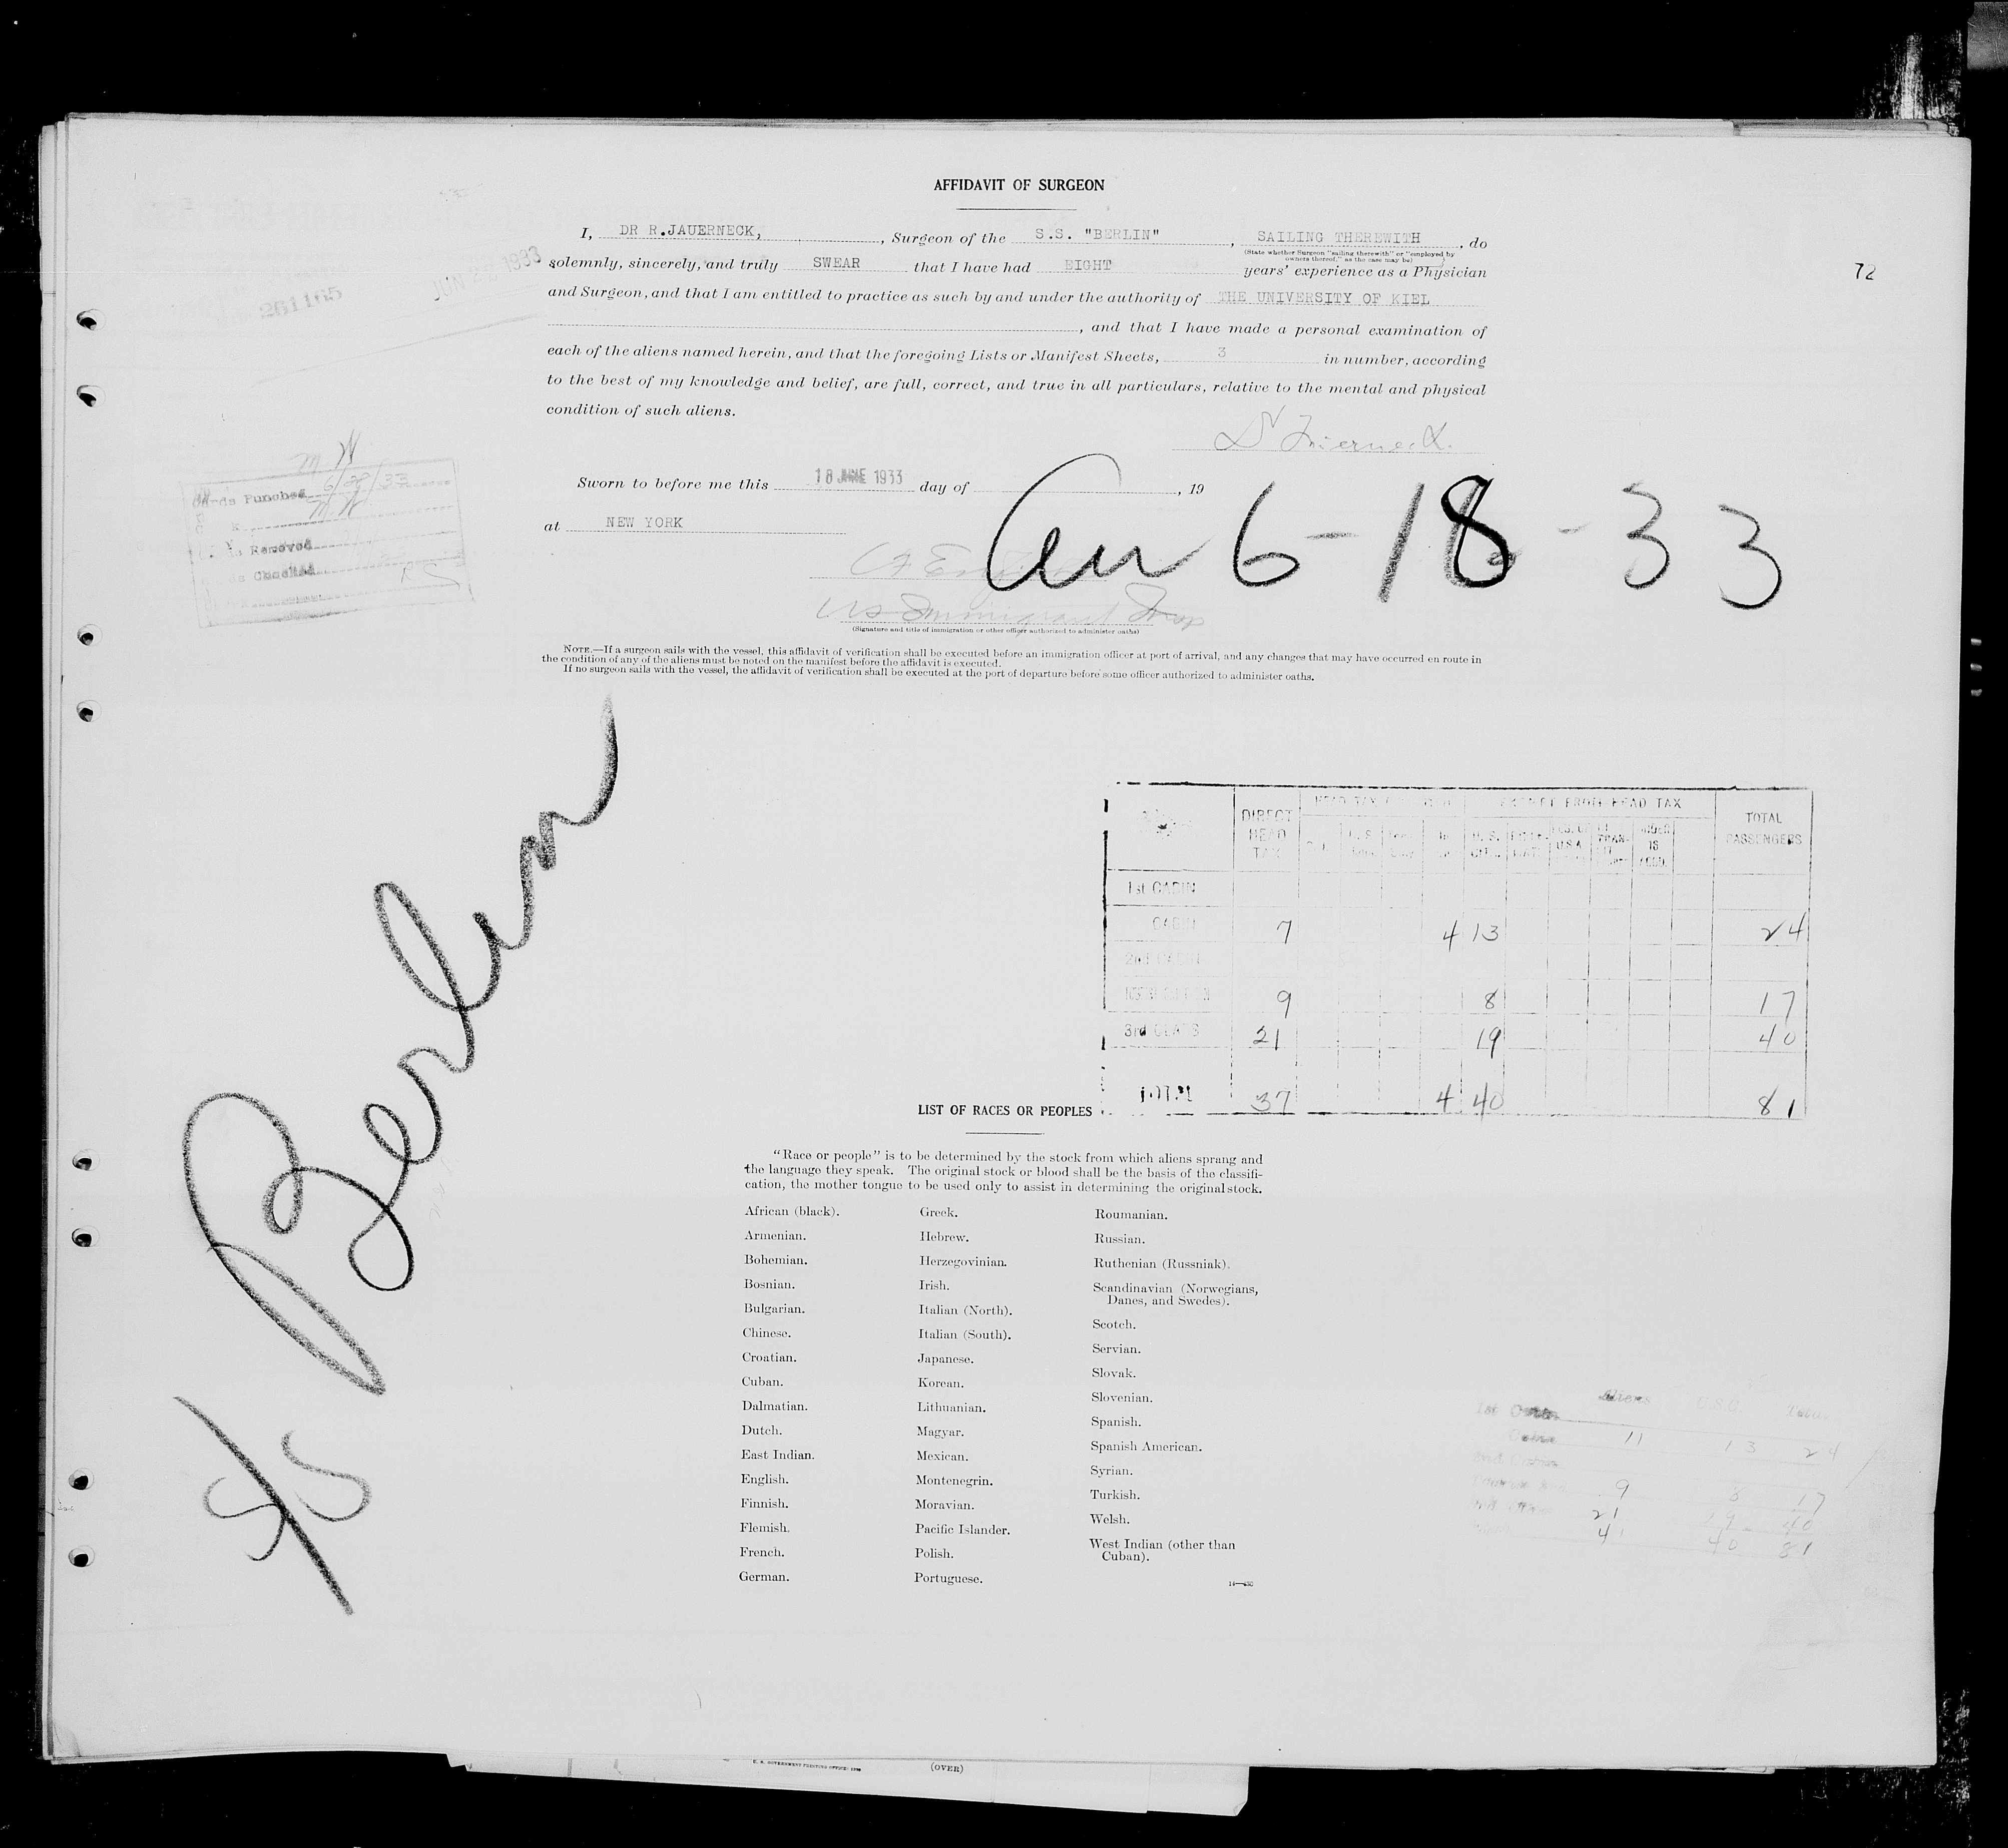 AFFIDAVIT OF SURGEON
I, DR R.JAUERNECK, , Surgeon of the S.S. "BERLIN" , SAILING THEREWITH , do
(State whether Surgeon "sailing therewith" or "employed by owners thereof," as the case may be)
solemnly, sincerely, and truly SWEAR that I have had EIGHT years' experience as a Physician
72
and Surgeon, and that I am entitled to practice as such by and under the authority of THE UNIVERSITY OF KIEL
JUN 1933
261165
, and that I have made a personal examination of
each of the aliens named herein, and that the foregoing Lists or Manifest Sheets, 3 in number, according
to the best of my knowledge and belief, are full, correct, and true in all particulars, relative to the mental and physical
condition of such aliens.
Sworn to before me this 18 JUNE 1933 day of , 19
at NEW YORK
6-18-33
Cards Punched
Removed
Checked
US Immigrant Insp
(Signature and title of immigration or other officer authorized to administer oaths)
NOTE.—If a surgeon sails with the vessel, this affidavit of verification shall be executed before an immigration officer at port of arrival, and any changes that may have occurred en route in
the condition of any of the aliens must be noted on the manifest before the affidavit is executed.
If no surgeon sails with the vessel, the affidavit of verification shall be executed at the port of departure before some officer authorized to administer oaths.
S/S Berlin
DIRECT HEAD TAX
EXEMPT FROM HEAD TAX
TOTAL PASSENGERS
1st CABIN
CABIN 7 4 13 24
2nd CABIN
9 8 17
3rd CLASS 21 19 40
TOTAL 37 4 40 81
LIST OF RACES OR PEOPLES
"Race or people" is to be determined by the stock from which aliens sprang and
the language they speak. The original stock or blood shall be the basis of the classifi-
cation, the mother tongue to be used only to assist in determining the original stock.
African (black).
Armenian.
Bohemian.
Bosnian.
Bulgarian.
Chinese.
Croatian.
Cuban.
Dalmatian.
Dutch.
East Indian.
English.
Finnish.
Flemish.
French.
German.
Greek.
Hebrew.
Herzegovinian.
Irish.
Italian (North).
Italian (South).
Japanese.
Korean.
Lithuanian.
Magyar.
Mexican.
Montenegrin.
Moravian.
Pacific Islander.
Polish.
Portuguese.
Roumanian.
Russian.
Ruthenian (Russniak).
Scandinavian (Norwegians,
Danes, and Swedes).
Scotch.
Servian.
Slovak.
Slovenian.
Spanish.
Spanish American.
Syrian.
Turkish.
Welsh.
West Indian (other than
Cuban).
Aliens U.S.C. Total
1st Cabin
11 13 24
9 8 17
21 19 40
41 40 81
U. S. GOVERNMENT PRINTING OFFICE:
(OVER)